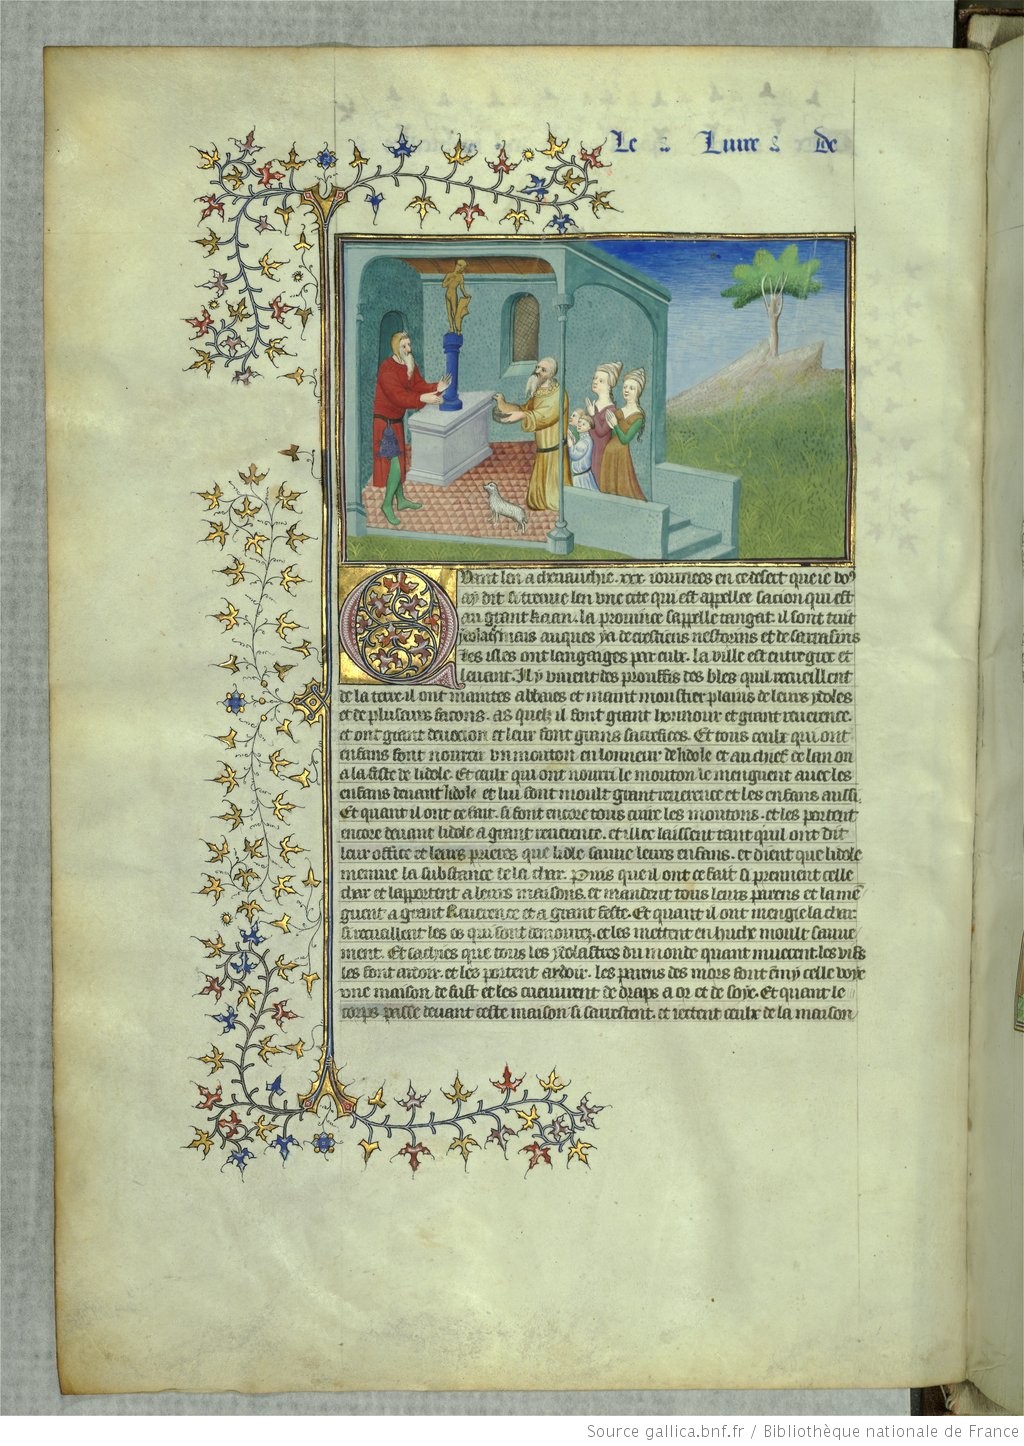 Le Liure De
Quant len a cheuauchie .xxx. iournees en ce desert que ie vo9
ay dit si treuue len vne cite qui est appellee sacion qui est
au grant kaan. la prouince sappelle tangut. il sont tuit
ydolastres mais auques ya de crestiens nestorins et de sarrasins
les ont langaiges par eulx. la ville est entre grec et
leuant. Il y viuent des prouffis des bles quil recueillent
de la terre. il ont maintes abbaies et maint moustier plains de leurs ydoles
et de plusieurs facons. as quelz il font grant honnour et grant reuerence.
et ont grant deuocion et leur font grans sacrefices. Et tous ceulx qui ont
enfans font nourrir vn mouton en lonneur de lidole et au chief de lan ou
a la feste de lidole. Et ceulx qui ont nourri le mouton le menguent auec les
enfans deuant lidole et lui font moult grant reuerence et les enfans aussi.
Et quant il ont ce fait. si font encore tous cuire les moutons. et les portent
encore deuant lidole a grant reuerence. et illec laissent tant quil ont dit
leur office et leurs prieres que lidole sauue leurs enfans. et dient que lidole
mengue la substance de la char. Puis que il ont ce fait si prennent celle
char et lapportent a leurs maisons. et mandent tous leurs parens et la mē
guent a grant Reuerence et a grant feste. Et quant il ont mengie la char
si recueillent les os qui sont demourez. et les mettent en huche moult sauue
ment. Et sachies que tous les ydolastres du monde quant muerent. les vifs
les font ardoir. et les portent ardoir. les parens des mors font emmy celle voye
vne maison de fust et les cueuurent de draps a or et de soye. Et quant le
corps passe deuant ceste maison si sarrestent. et iettent ceulx de la maison
Source gallica.bnf.fr / Bibliothèque nationale de France